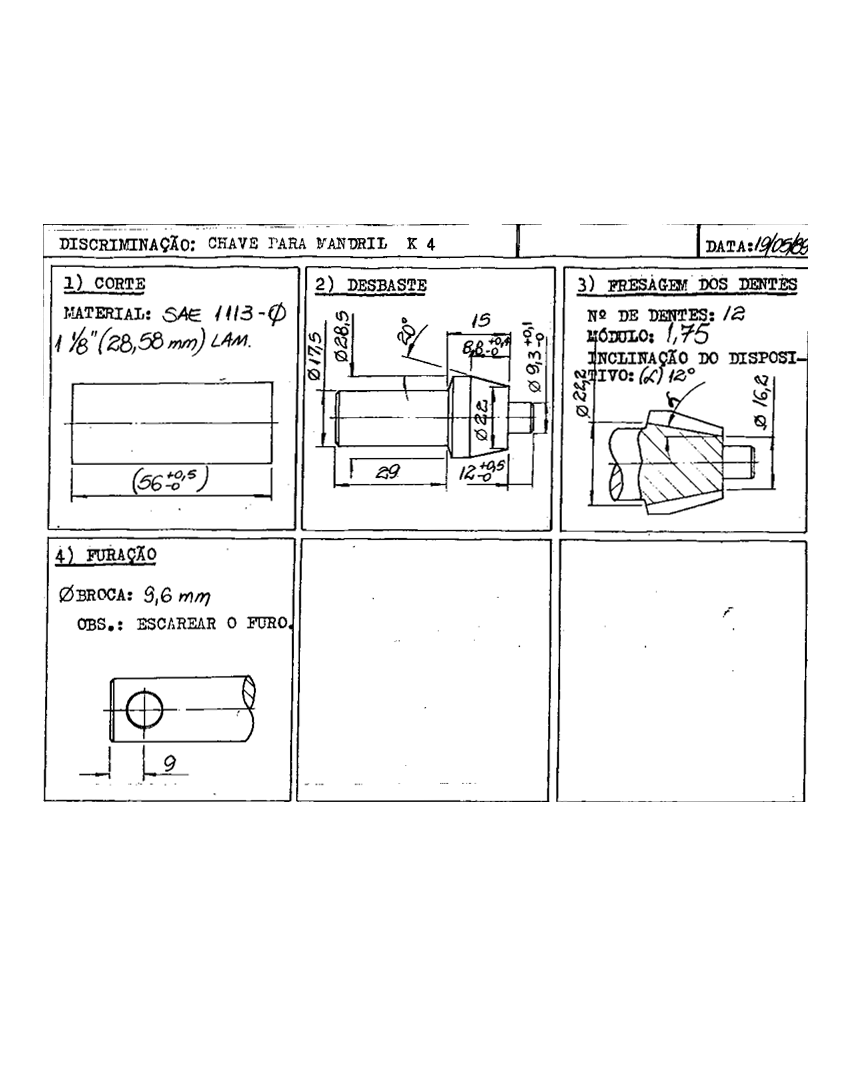 DISCRIMINAÇÃO: CHAVE PARA MANDRIL K 4
DATA: 19/05/89
1) CORTE
MATERIAL: SAE 1113-Ø
1 1/8" (28,58 mm) LAM.
(56 +0,5 -0)
2) DESBASTE
Ø17,5
Ø28,5
20°
15
8,8 +0,4 -0
Ø9,3 +0,1 -0
Ø22
29
12 +0,5 -0
3) FRESAGEM DOS DENTES
Nº DE DENTES: 12
MÓDULO: 1,75
INCLINAÇÃO DO DISPOSI-
TIVO: (α) 12°
Ø22,2
α
Ø 16,2
4) FURAÇÃO
Ø BROCA: 9,6 mm
OBS.: ESCAREAR O FURO.
9